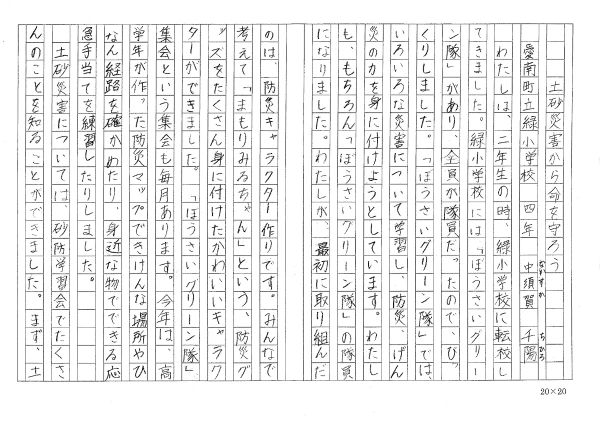 土砂災害から命を守ろう
愛南町立緑小学校　四年　中須賀　千陽
なかすか　ちひろ
わたしは、二年生の時、緑小学校に転校し
てきました。緑小学校には「ぼうさいグリー
ン隊」があり、全員が隊員だったので、びっ
くりしました。「ぼうさいグリーン隊」では、
いろいろな災害について学習し、防災、げん
災の力を身に付けようとしています。わたし
も、もちろん「ぼうさいグリーン隊」の隊員
になりました。わたしが、最初に取り組んだ
のは、防災キャラクター作りです。みんなで
考えて「まもりみるちゃん」という、防災グ
ッズをたくさん身に付けたかわいいキャラク
ターができました。「ぼうさいグリーン隊」
集会という集会も毎月あります。今年は、高
学年が作った防災マップできけんな場所やひ
なん経路を確かめたり、身近な物でできる応
急手当てを練習したりしました。
土砂災害については、砂防学習会でたくさ
んのことを知ることができました。まず、土
20×20